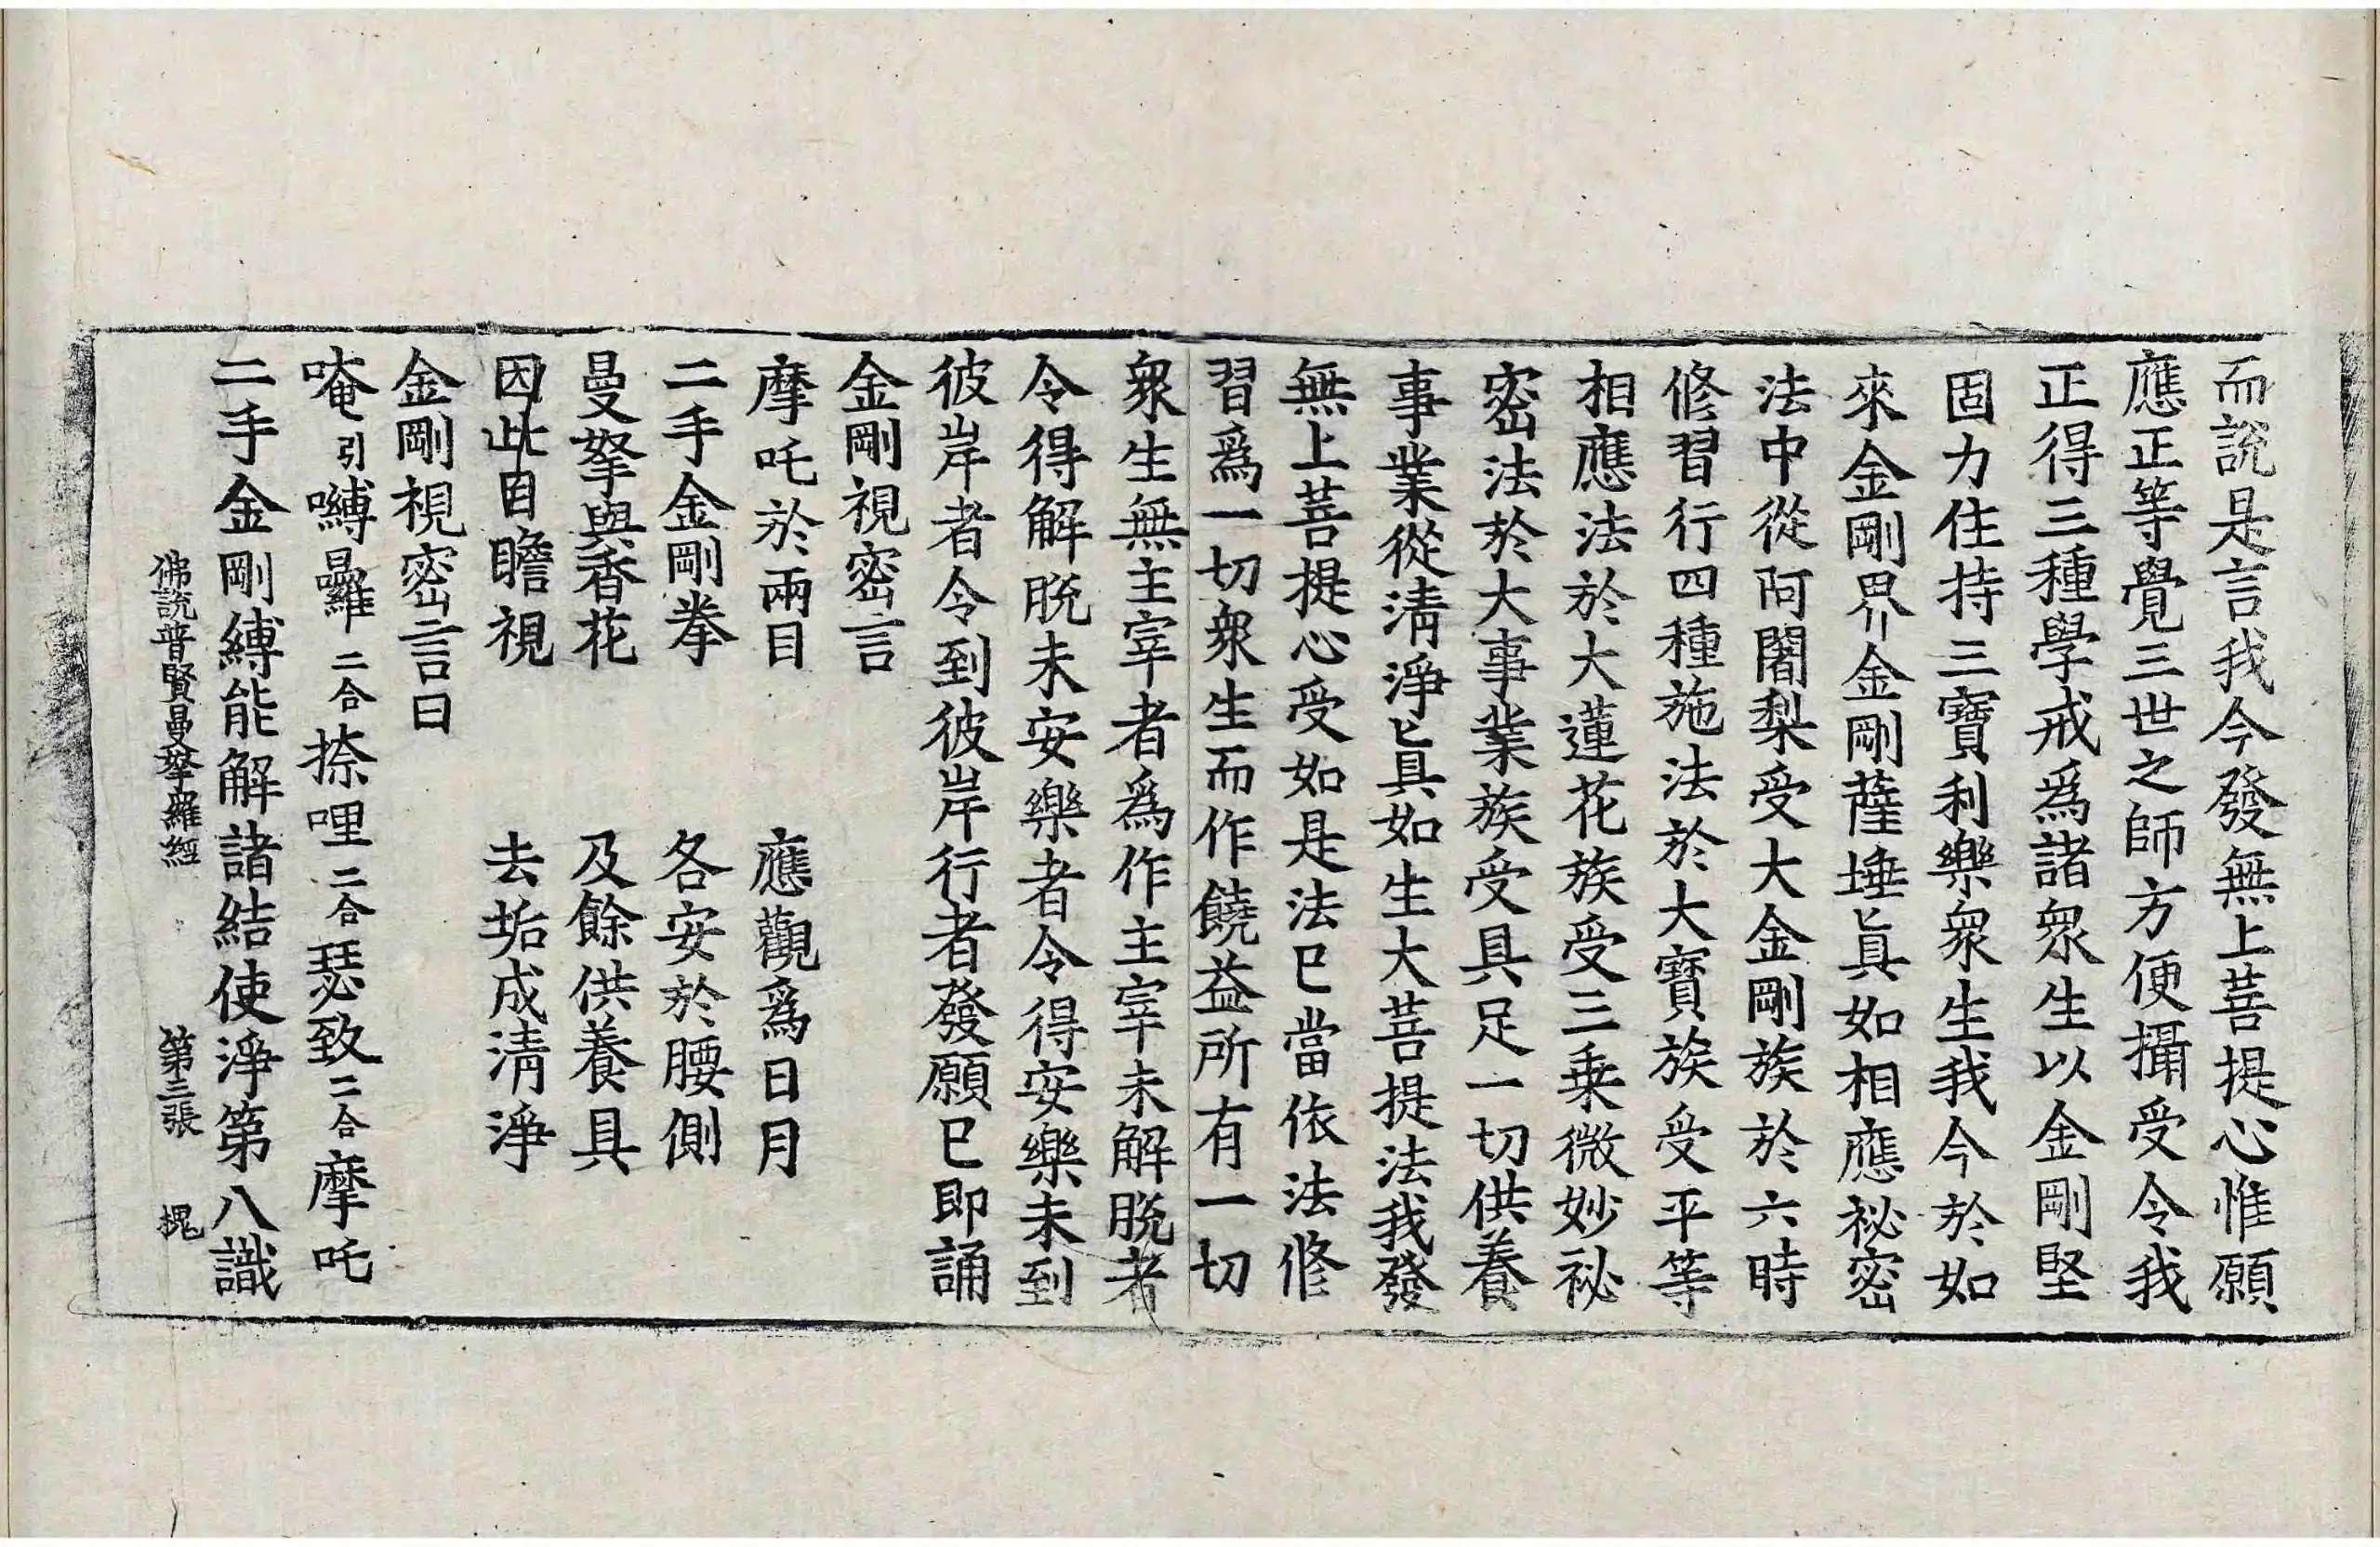 而說是言我今發無上菩提心惟願
應正等覺三世之師方便攝受令我
正得三種學戒爲諸衆生以金剛堅
固力住持三寶利樂衆生我今於如
來金剛界金剛薩埵眞如相應祕密
法中從阿闍梨受大金剛族於六時
修習行四種施法於大寶族受平等
相應法於大蓮花族受三乘微妙祕
密法於大事業族受具足一切供養
事業從淸淨眞如生大菩提法我發
無上菩提心受如是法已當依法修
習爲一切衆生而作饒益所有一切
衆生無主宰者爲作主宰未解脫者
令得解脫未安樂者令得安樂未到
彼岸者令到彼岸行者發願已即誦
金剛視密言
摩吒於兩目　應觀爲日月
二手金剛拳　各安於腰側
曼拏與香花　及餘供養具
因此目瞻視　去垢成淸淨
金剛視密言曰
唵引嚩曩羅二合捺哩二合瑟致二合摩吒
二手金剛縛能解諸結使淨第八識
佛說普賢曼拏羅經　第三張　槐